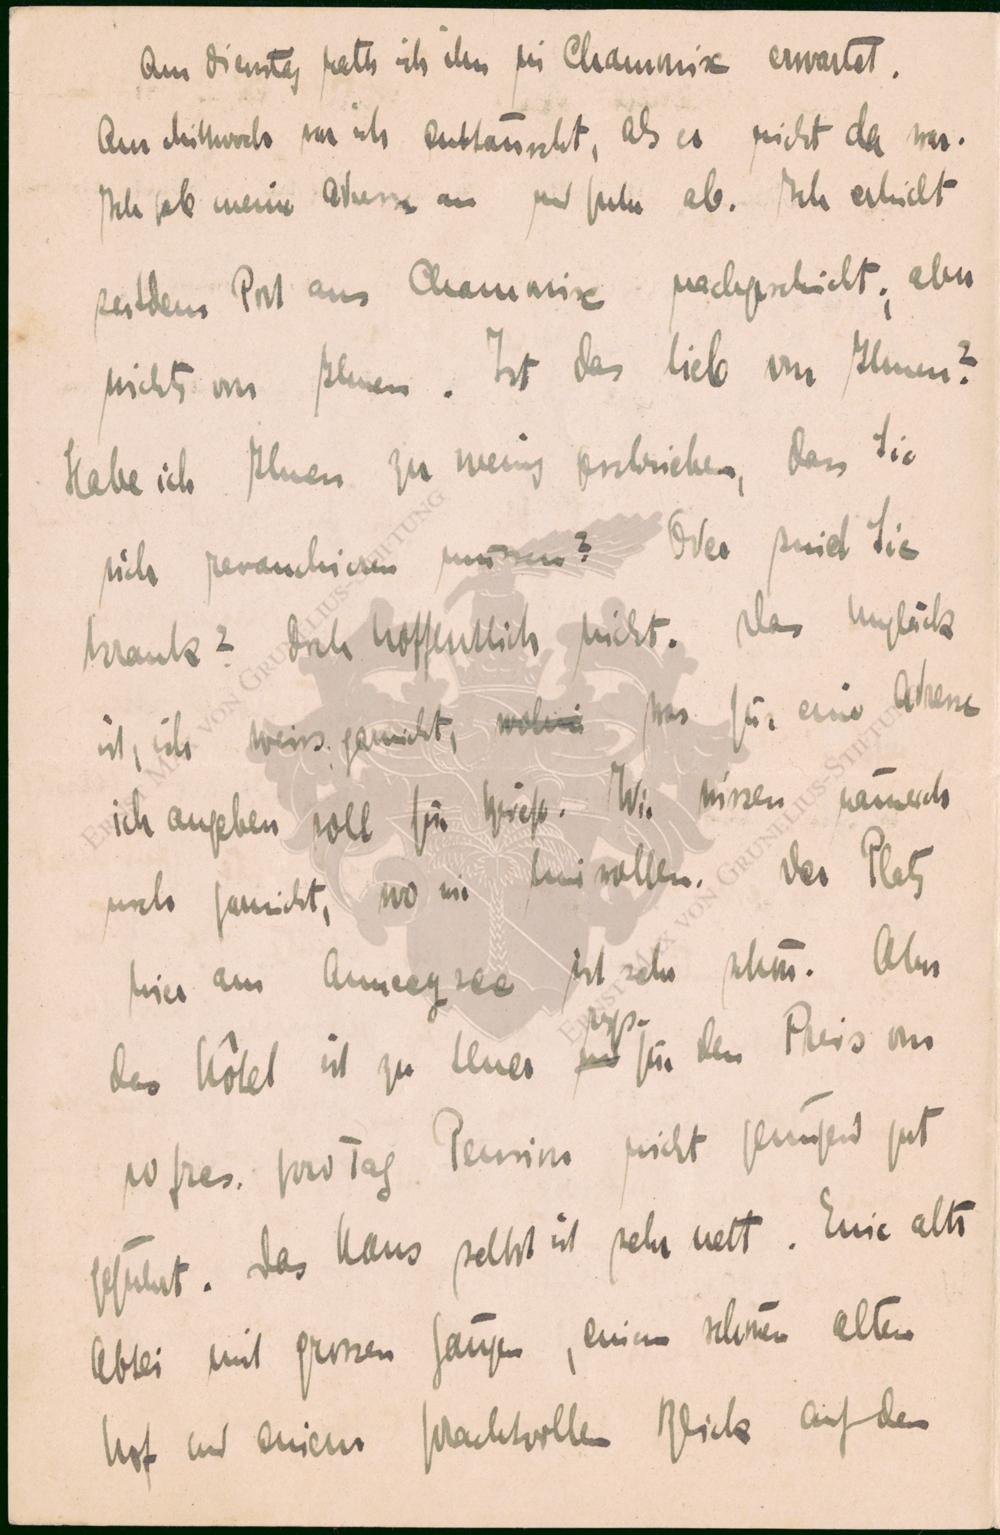 Am Dienstag hatte ich ihn in Chamonix erwartet.
Am Mittwoch war ich enttäuscht, als er nicht da war.
Ich gab meine Adresse an und fuhr ab. Ich erhielt
seitdem Post aus Chamonix nachgeschickt, aber
nichts von Ihnen. Ist das lieb von Ihnen?
Habe ich Ihnen zu wenig geschrieben, dass Sie
sich revanchieren müssen? Oder sind Sie
krank? Doch hoffentlich nicht. Das Unglück
ist, ich weiss garnicht, was für eine Adresse
ich angeben soll für Briefe. Wir wissen nämlich
noch garnicht, wo wir hinwollen. Der Platz
hier am Annecysee ist sehr schön. Aber
das Hôtel ist zu teuer resp. für den Preis von
10 frcs. pro Tag Pension nicht genügend gut
geführt. Das Haus selbst ist sehr nett. Eine alte
Abtei mit grossen Gängen, einem schönen alten
Hof und einem prachtvollen Blick auf den
ERNST MAX VON GRUNELIUS-STIFTUNG
ERNST MAX VON GRUNELIUS-STIFTUNG